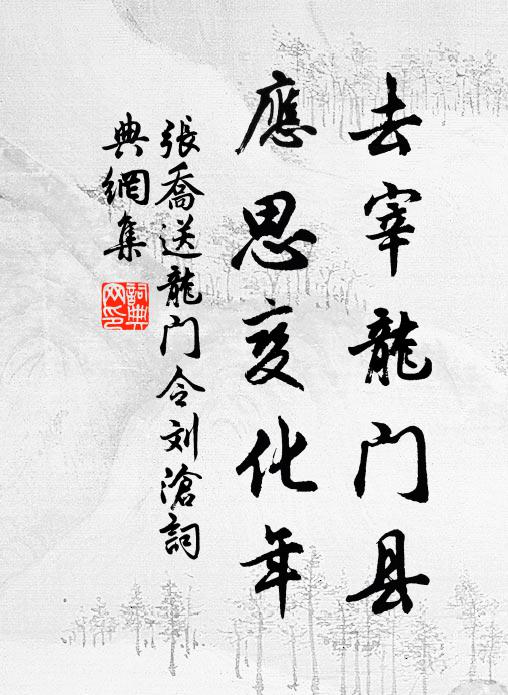 去宰龍门县
應思变化年
張喬送龍门令刘滄詞
典網集
詞典
网印